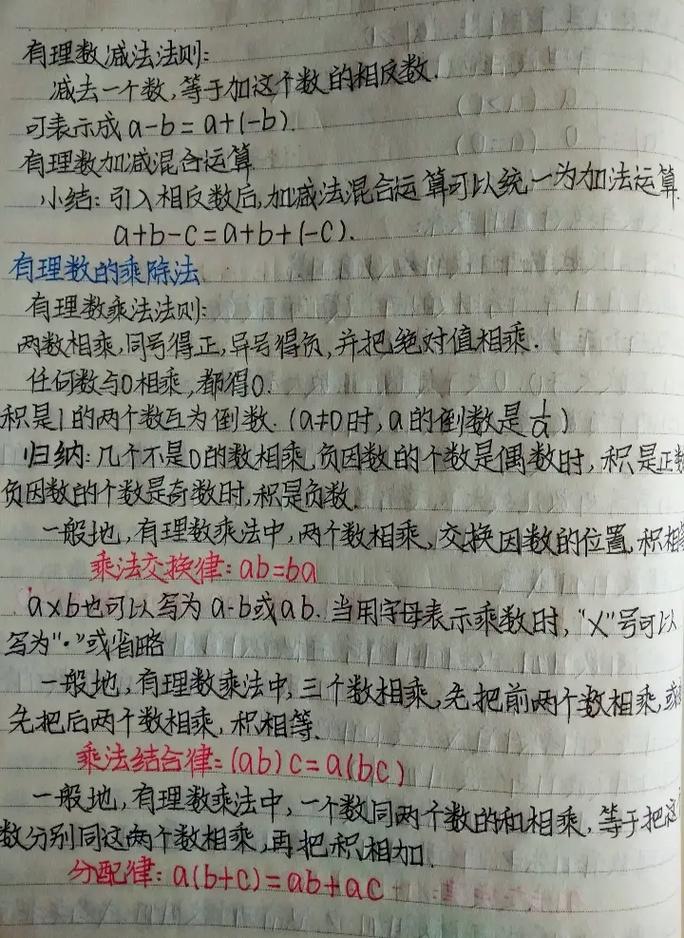 有理数减法法则:
减去一个数,等于加这个数的相反数.
可表示成 a-b=a+(-b).
有理数加减混合运算
小结: 引入相反数后,加减法混合运算可以统一为加法运算.
a+b-c=a+b+(-c).
有理数的乘除法
有理数乘法法则:
两数相乘,同号得正,异号得负,并把绝对值相乘.
任何数与0相乘,都得0.
积是1的两个数互为倒数. (a≠0时,a的倒数是1/a)
归纳: 几个不是0的数相乘,负因数的个数是偶数时, 积是正数
负因数的个数是奇数时,积是负数.
一般地,有理数乘法中,两个数相乘,交换因数的位置,积相等
乘法交换律: ab=ba
a×b也可以写为a·b或ab. 当用字母表示乘数时,“×”号可以
写为“·”或省略
一般地,有理数乘法中,三个数相乘,先把前两个数相乘,或
先把后两个数相乘, 积相等.
乘法结合律: (ab)c=a(bc)
一般地,有理数乘法中,一个数同两个数的和相乘,等于把这
数分别同这两个数相乘,再把积相加.
分配律: a(b+c)=ab+ac